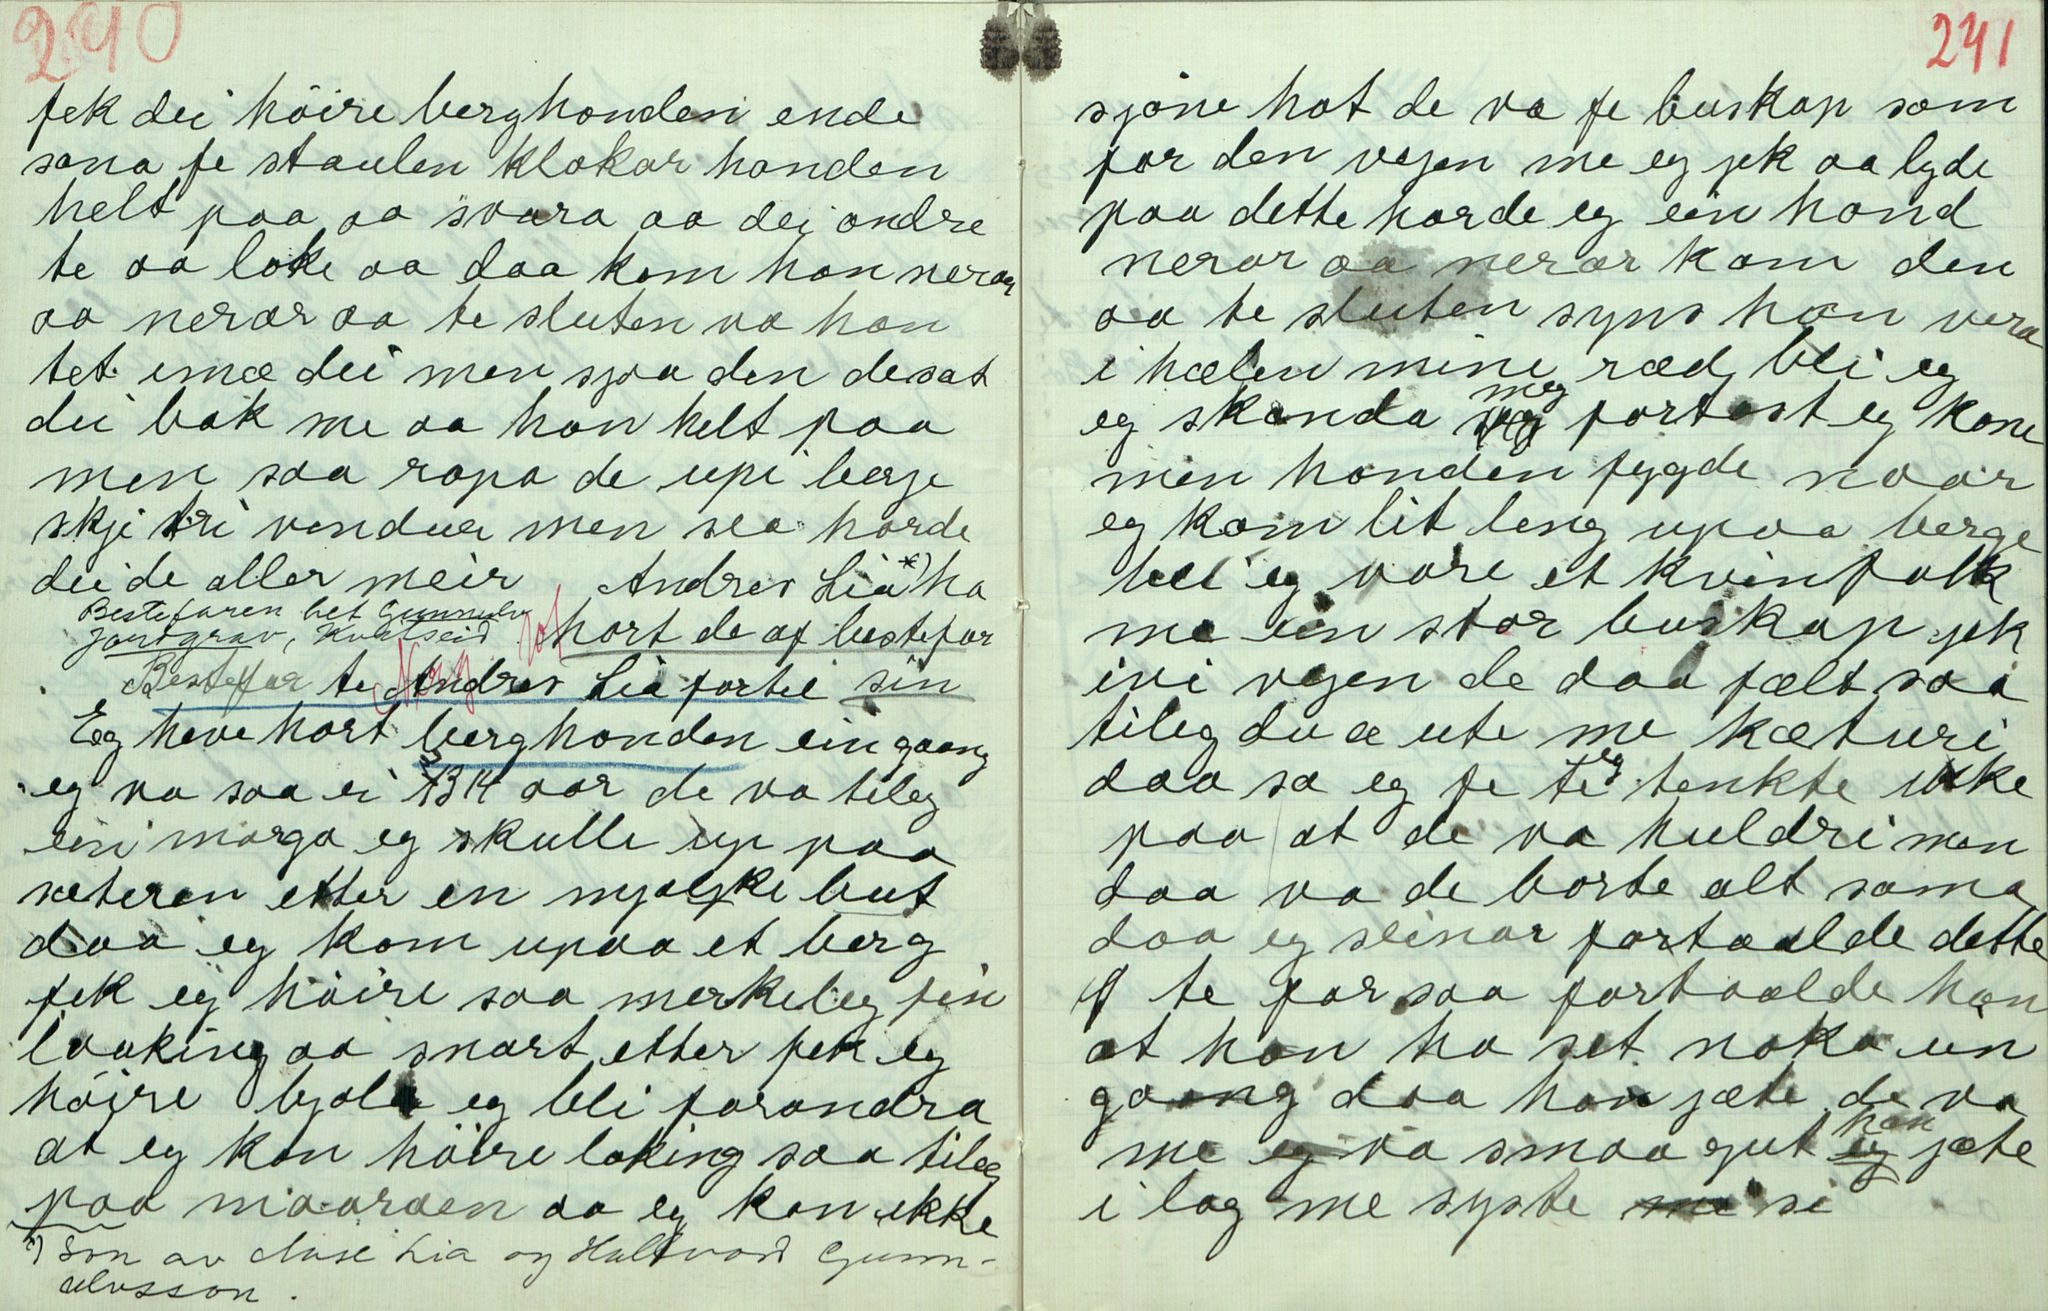 290
fek dei höire berghonden ende
sona fe staulen klokar honden
helt paa aa svara aa dei andre
te aa loke aa daa kom han nerar
aa nerar aa te sluten va han
tet imæ dei men sjaa den desat
dei bak me aa han helt paa
men saa ropa de upi berje
skji tri vendur men sea horde
dei de aller meir Andres Lia *) ha
Bestefaren het Gunnulv
Jordgrav, Kvitseid
hort de af bestefar
Bestefar te Andres Lia fortel sin
Eg heve hort berghonden ein gaang
eg va saa ei 13 14 aar de va tileg
ein morga eg skulle up paa
sæteren etter en mjølke but
daa eg kom upaa et berg
fek eg höire saa merkeleg fin
laaking aa snart etter fek eg
höire bjøla eg blei forandra
at eg kan höire loking saa tileg
paa maaraen aa eg kan ikke
*) Son av Aase Lia og Hallvard Gunn-
ulvsson.
291
sjöne hot de va fe buskap som
for den vejen me eg jek aa lyde
paa dette horde eg ein hond
nerar aa nerar kom den
aa te sluten syns han vera
i hælen mine ræd bli eg
eg skonda meg fortast eg kone
men honden fygde naar
eg kom lit leng upaa berge
blei eg vare et kvinfolk
me ein stor buskap jek
ivi vejen de daa fælt saa
tileg du æ ute me kæturi
daa sa eg fe eg tenkte ikke
paa at de va huldri men
daa va de borte alt sama
daa eg seinar fortaalde dette
te far saa fortaalde han
at han ha set noko ein
gaang daa han jæte de va
me eg va smaa gut han jæte
i lag me syste si